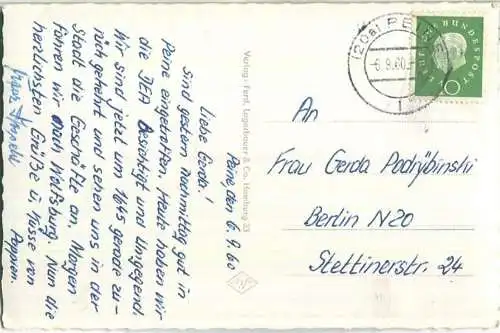 Peine, den 6.9.60
Liebe Gerda!
Sind gestern Nachmittag gut in
Peine eingetroffen. Heute haben wir
die JEA Besichtigt und Umgegend
Wir sind jetzt um 1645 gerade zu-
rück gekehrt und sehen uns in der
Stadt die Geschäfte an, Morgen
fahren wir nach Wolfsburg. Nun die
herzlichsten Grüße u Küsse von
Pappon.
Verlag: Ferd. Lagerbauer & Co. Hamburg 23
(20a) PEINE
6.9.60
1
DEUTSCHE BUNDESPOST
10
An
Frau Gerda Podrybinski
Berlin N20
Stettinerstr. 24